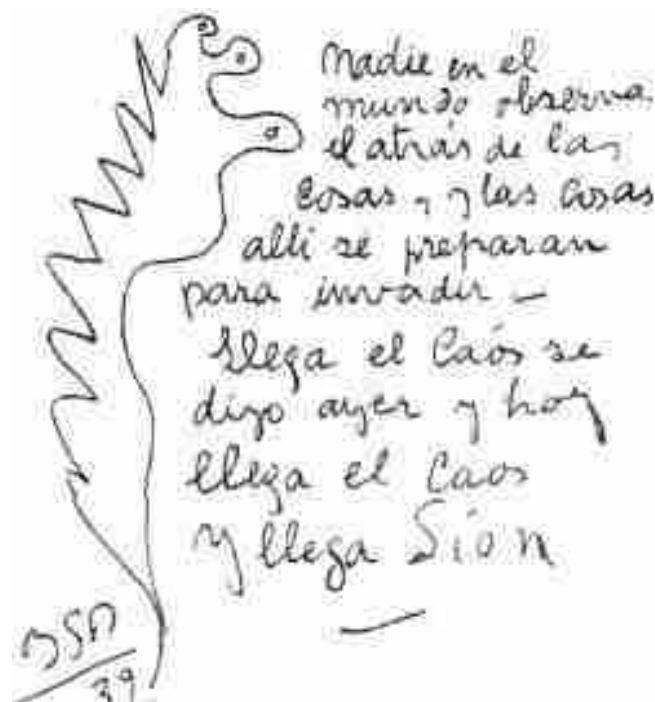 Nadie en el
mundo observa
el atrás de las
cosas, y las cosas
alli se preparan
para invadir -
Llega el Caos se
dijo ayer y hoy
llega el Caos
y llega Sion
BSP
39